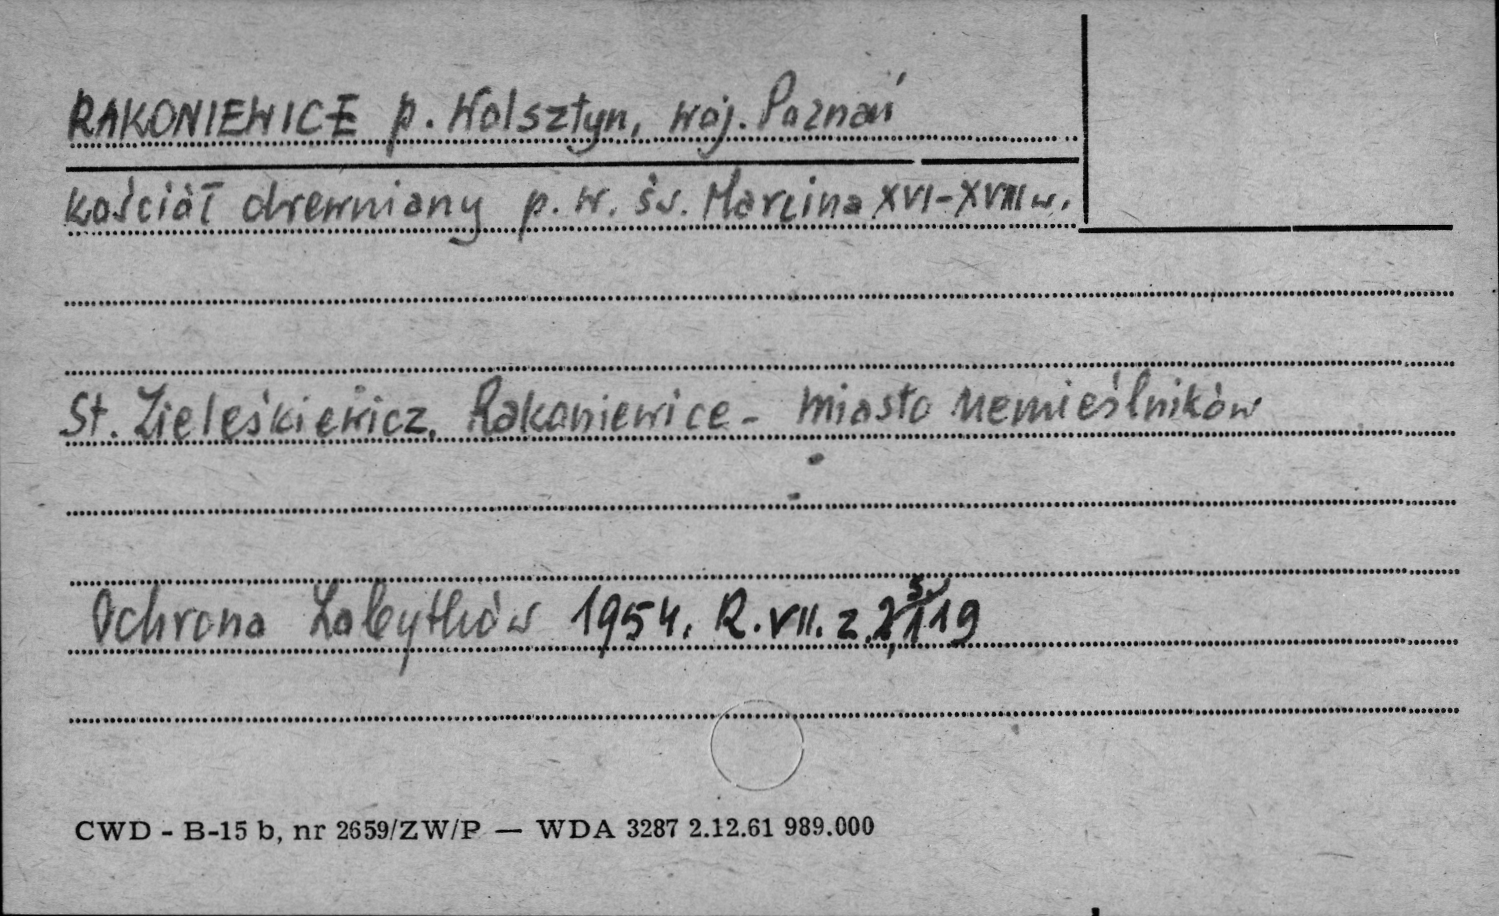 RAKONIEWICE p. Wolsztyn, woj. Poznań
kościół drewniany p. w. św. Marcina XVI-XVIII w.
St. Zieleśkiewicz, Rakoniewice - miasto rzemieślników
Ochrona Zabytków 1954. R. VII. z. 2, s. 119
CWD - B-15 b, nr 2659/ZW/P — WDA 3287 2.12.61 989.000